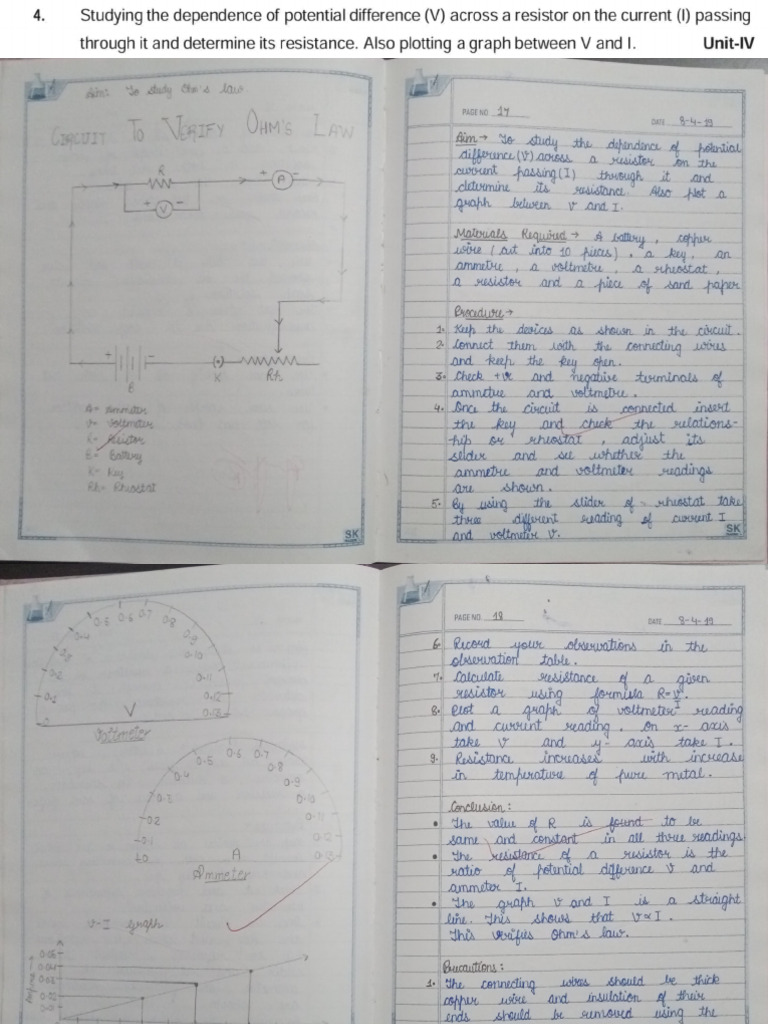 4. Studying the dependence of potential difference (V) across a resistor on the current (I) passing
through it and determine its resistance. Also plotting a graph between V and I. Unit-IV
Aim: To study Ohm's law
CIRCUIT TO VERIFY OHM'S LAW
R
+ A -
+ V -
+ -
B
K
Rh
A= ammeter
V= Voltmeter
R= Resistor
B= Battery
K= Key
Rh= Rheostat
SK
PAGE NO. 17
DATE 8-4-19
Aim → To study the dependence of potential
difference (V) across a resistor on the
current passing (I) through it and
determine its resistance. Also plot a
graph between V and I.
Materials Required → A battery, copper
wire (cut into 10 pieces), a key, an
ammetre, a voltmetre, a rheostat,
a resistor and a piece of sand paper
Procedure →
1. Keep the devices as shown in the circuit.
2. Connect them with the connecting wires
and keep the key open.
3. Check +ve and negative terminals of
ammetre and voltmetre.
4. Once the circuit is connected insert
the key and check the relations-
hip or rheostat, adjust its
slider and see whether the
ammetre and voltmeter readings
are shown.
5. By using the slider of rheostat take
three different reading of current I
and voltmeter V.
SK
0.4
0.5
0.6
0.7
0.8
0.9
0.10
0.11
0.12
0.13
V
Voltmeter
0.4
0.5
0.6
0.7
0.8
0.9
0.10
0.11
0.12
0.13
A
Ammeter
V-I graph
0.05
0.04
0.03
0.02
PAGE NO. 18
DATE 8-4-19
6. Record your observations in the
observation table.
7. Calculate resistance of a given
resistor using formula R=V/I
8. Plot a graph of voltmeter reading
and current reading. On x- axis
take V and y- axis take I.
9. Resistance increases with increase
in temperature of pure metal.
Conclusion:
• The value of R is found to be
same and constant in all three readings.
• The resistance of a resistor is the
ratio of potential difference V and
ammeter I.
• The graph V and I is a straight
line. This shows that V∝I.
This verifies Ohm's law.
Precautions:
1. The connecting wires should be thick
copper wire and insulation of their
ends should be removed using the